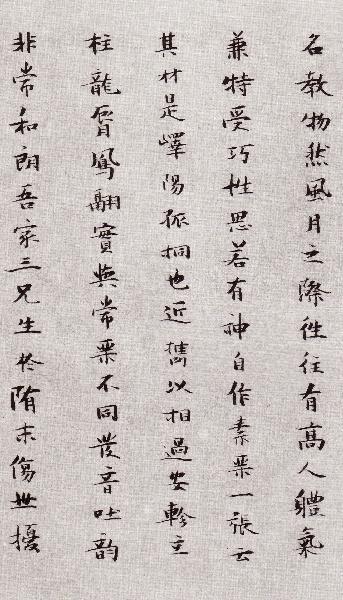 名教物然風月之際往往有高人體氣
兼特受巧性思若有神自作素琹一張云
其材是嶧陽孤桐也近携以相過安軫立
柱龍脣鳳翮實與常琹不同發音吐韵
非常和朗吾家三兄生於隋末傷世擾